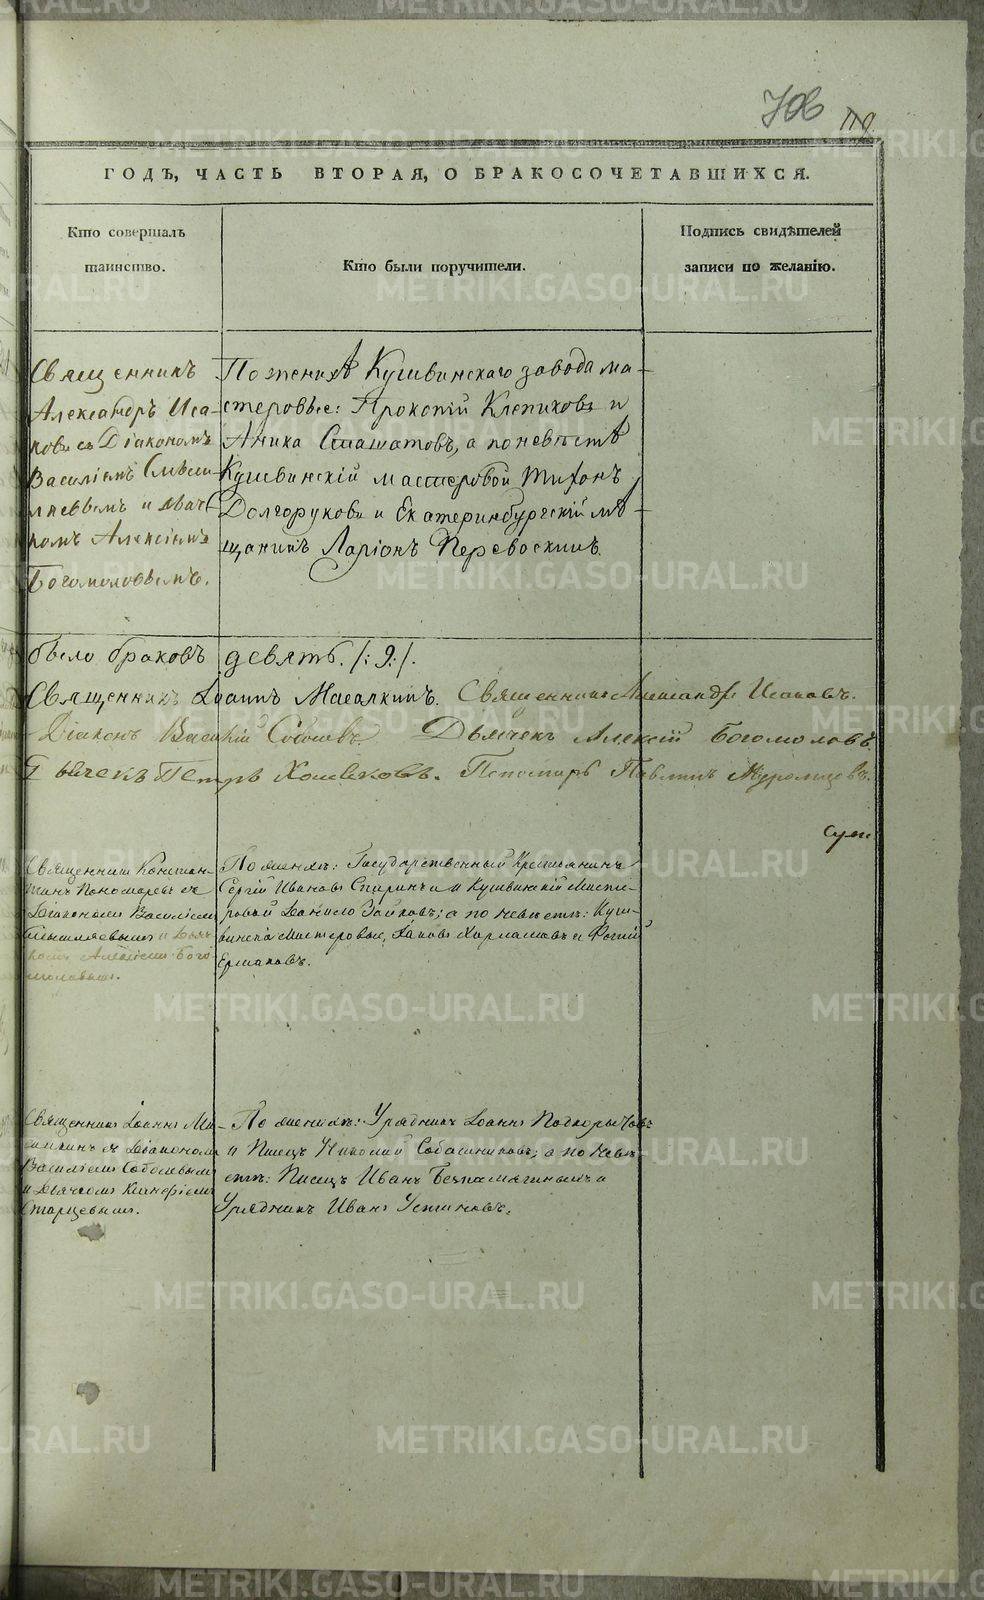 706
119
ГОДЪ, ЧАСТЬ ВТОРАЯ, О БРАКОСОЧЕТАВШИХСЯ.
Кто совершалъ
таинство.
Кто были поручители.
Подпись свидѣтелей
записи по желанію.
Священникъ
Александръ Иса-
ковъ съ Діакономъ
Василіемъ
и дьяч-
комъ Алексіемъ
Богомоловымъ.
По женихѣ Кушвинскаго завода ма-
стеровые: Прокопій Клепиковъ и
Аника а по невѣстѣ
Кушвинскій мастеровой Тихонъ
Долгоруковъ и Екатеринбургскій мѣ-
щанинъ Ларіонъ Перевоскинъ.
было браковъ девять. /:9:/.
Священникъ Іоаннъ Масалкинъ. Священникъ Александръ Исаковъ.
Діаконъ Василій Соболевъ. Дьячекъ Алексій Богомоловъ
Дьячекъ Петръ Пономарь Павлинъ
Священникъ Констан-
тинъ Пономаревъ съ
Діакономъ Василіемъ
и Дьяч-
комъ Алексіемъ Бого-
моловымъ.
По женихѣ: Государственный Крестьянинъ
Сергій Ивановъ и Кушвинскій Масте-
ровой Данило Зайковъ; а по невѣстѣ: Куш-
винскіе Мастеровые, Іаковъ и
Ермаковъ.
Священникъ Іоаннъ Ма-
салкинъ съ Діакономъ
Василіемъ Соболевымъ
и Дьячкомъ
Старцевымъ.
По женихѣ: Урядникъ Іоаннъ Подкорытовъ
и Писецъ Николай Собашниковъ; а по невѣ-
стѣ: Писецъ Иванъ и
Урядникъ Иванъ Устиновъ.
METRIKI.GASO-URAL.RU